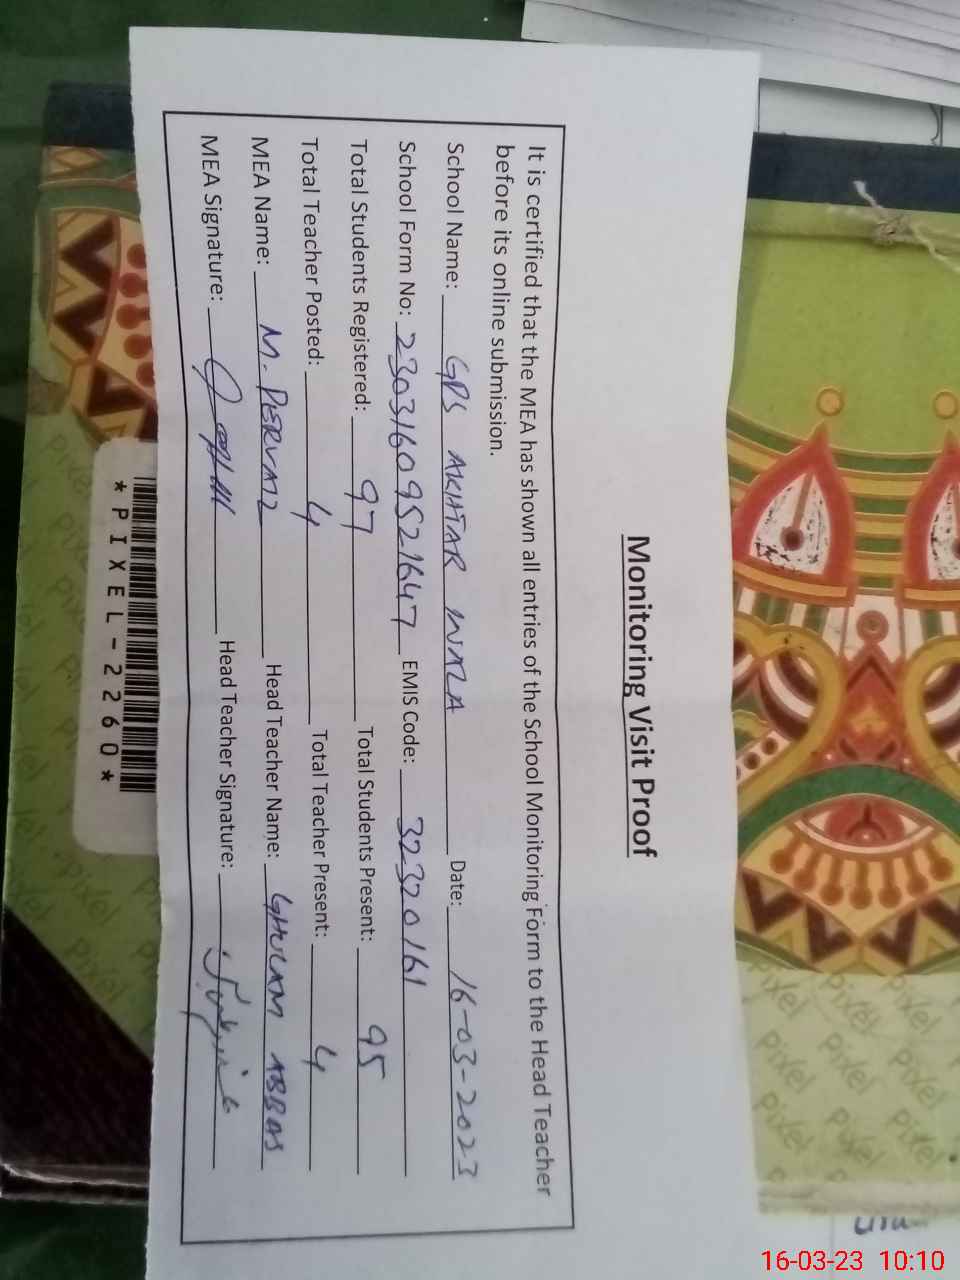 Monitoring Visit Proof
It is certified that the MEA has shown all entries of the School Monitoring Form to the Head Teacher
before its online submission.
School Name: GPS AKHTAR WALA Date: 16-03-2023
School Form No: 23031609521647 EMIS Code: 32320161
Total Students Registered: 97 Total Students Present: 95
Total Teacher Posted: 4 Total Teacher Present: 4
MEA Name: M. PERVAIZ Head Teacher Name: GHULAM ABBAS
MEA Signature: Head Teacher Signature:
*PIXEL-2260*
Pixel
16-03-23 10:10